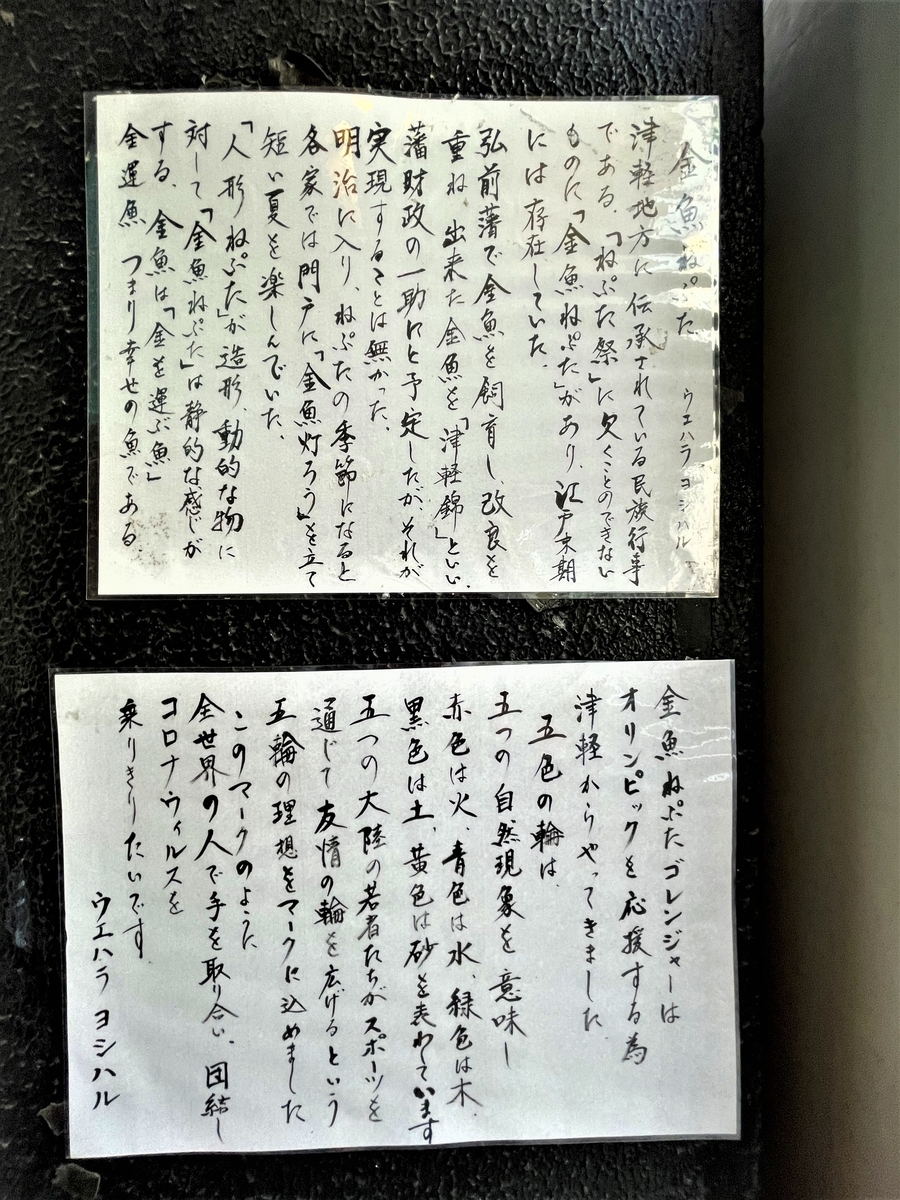 金魚ねぷた
ウエハラ ヨシハル
津軽地方に伝承されている民族行事
である、「ねぷた祭」に欠くことのできない
ものに「金魚ねぷた」があり、江戸末期
には存在していた、
弘前藩で金魚を飼育し改良を
重ね 出来た金魚を「津軽錦」といい、
藩財政の一助にと予定したが、それが
実現することは無かった、
明治に入り、ねぷたの季節になると
各家では門戸に「金魚灯ろう」を立て
短い夏を楽しんでいた、
「人形ねぷた」が造形、動的な物に
対して「金魚ねぷた」は静的な感じが
する、金魚は「金を運ぶ魚」
金運魚 つまり幸せの魚である
金魚ねぷたゴレンジャーは
オリンピックを応援する為
津軽からやってきました
五色の輪は、
五つの自然現象を意味し
赤色は火、青色は水、緑色は木、
黒色は土、黄色は砂を表わしています
五つの大陸の若者たちがスポーツを
通じて友情の輪を広げるという
五輪の理想をマークに込めました
このマークのように
全世界の人で手を取り合い、団結し
コロナウィルスを
乗りきりたいです、
ウエハラ ヨシハル